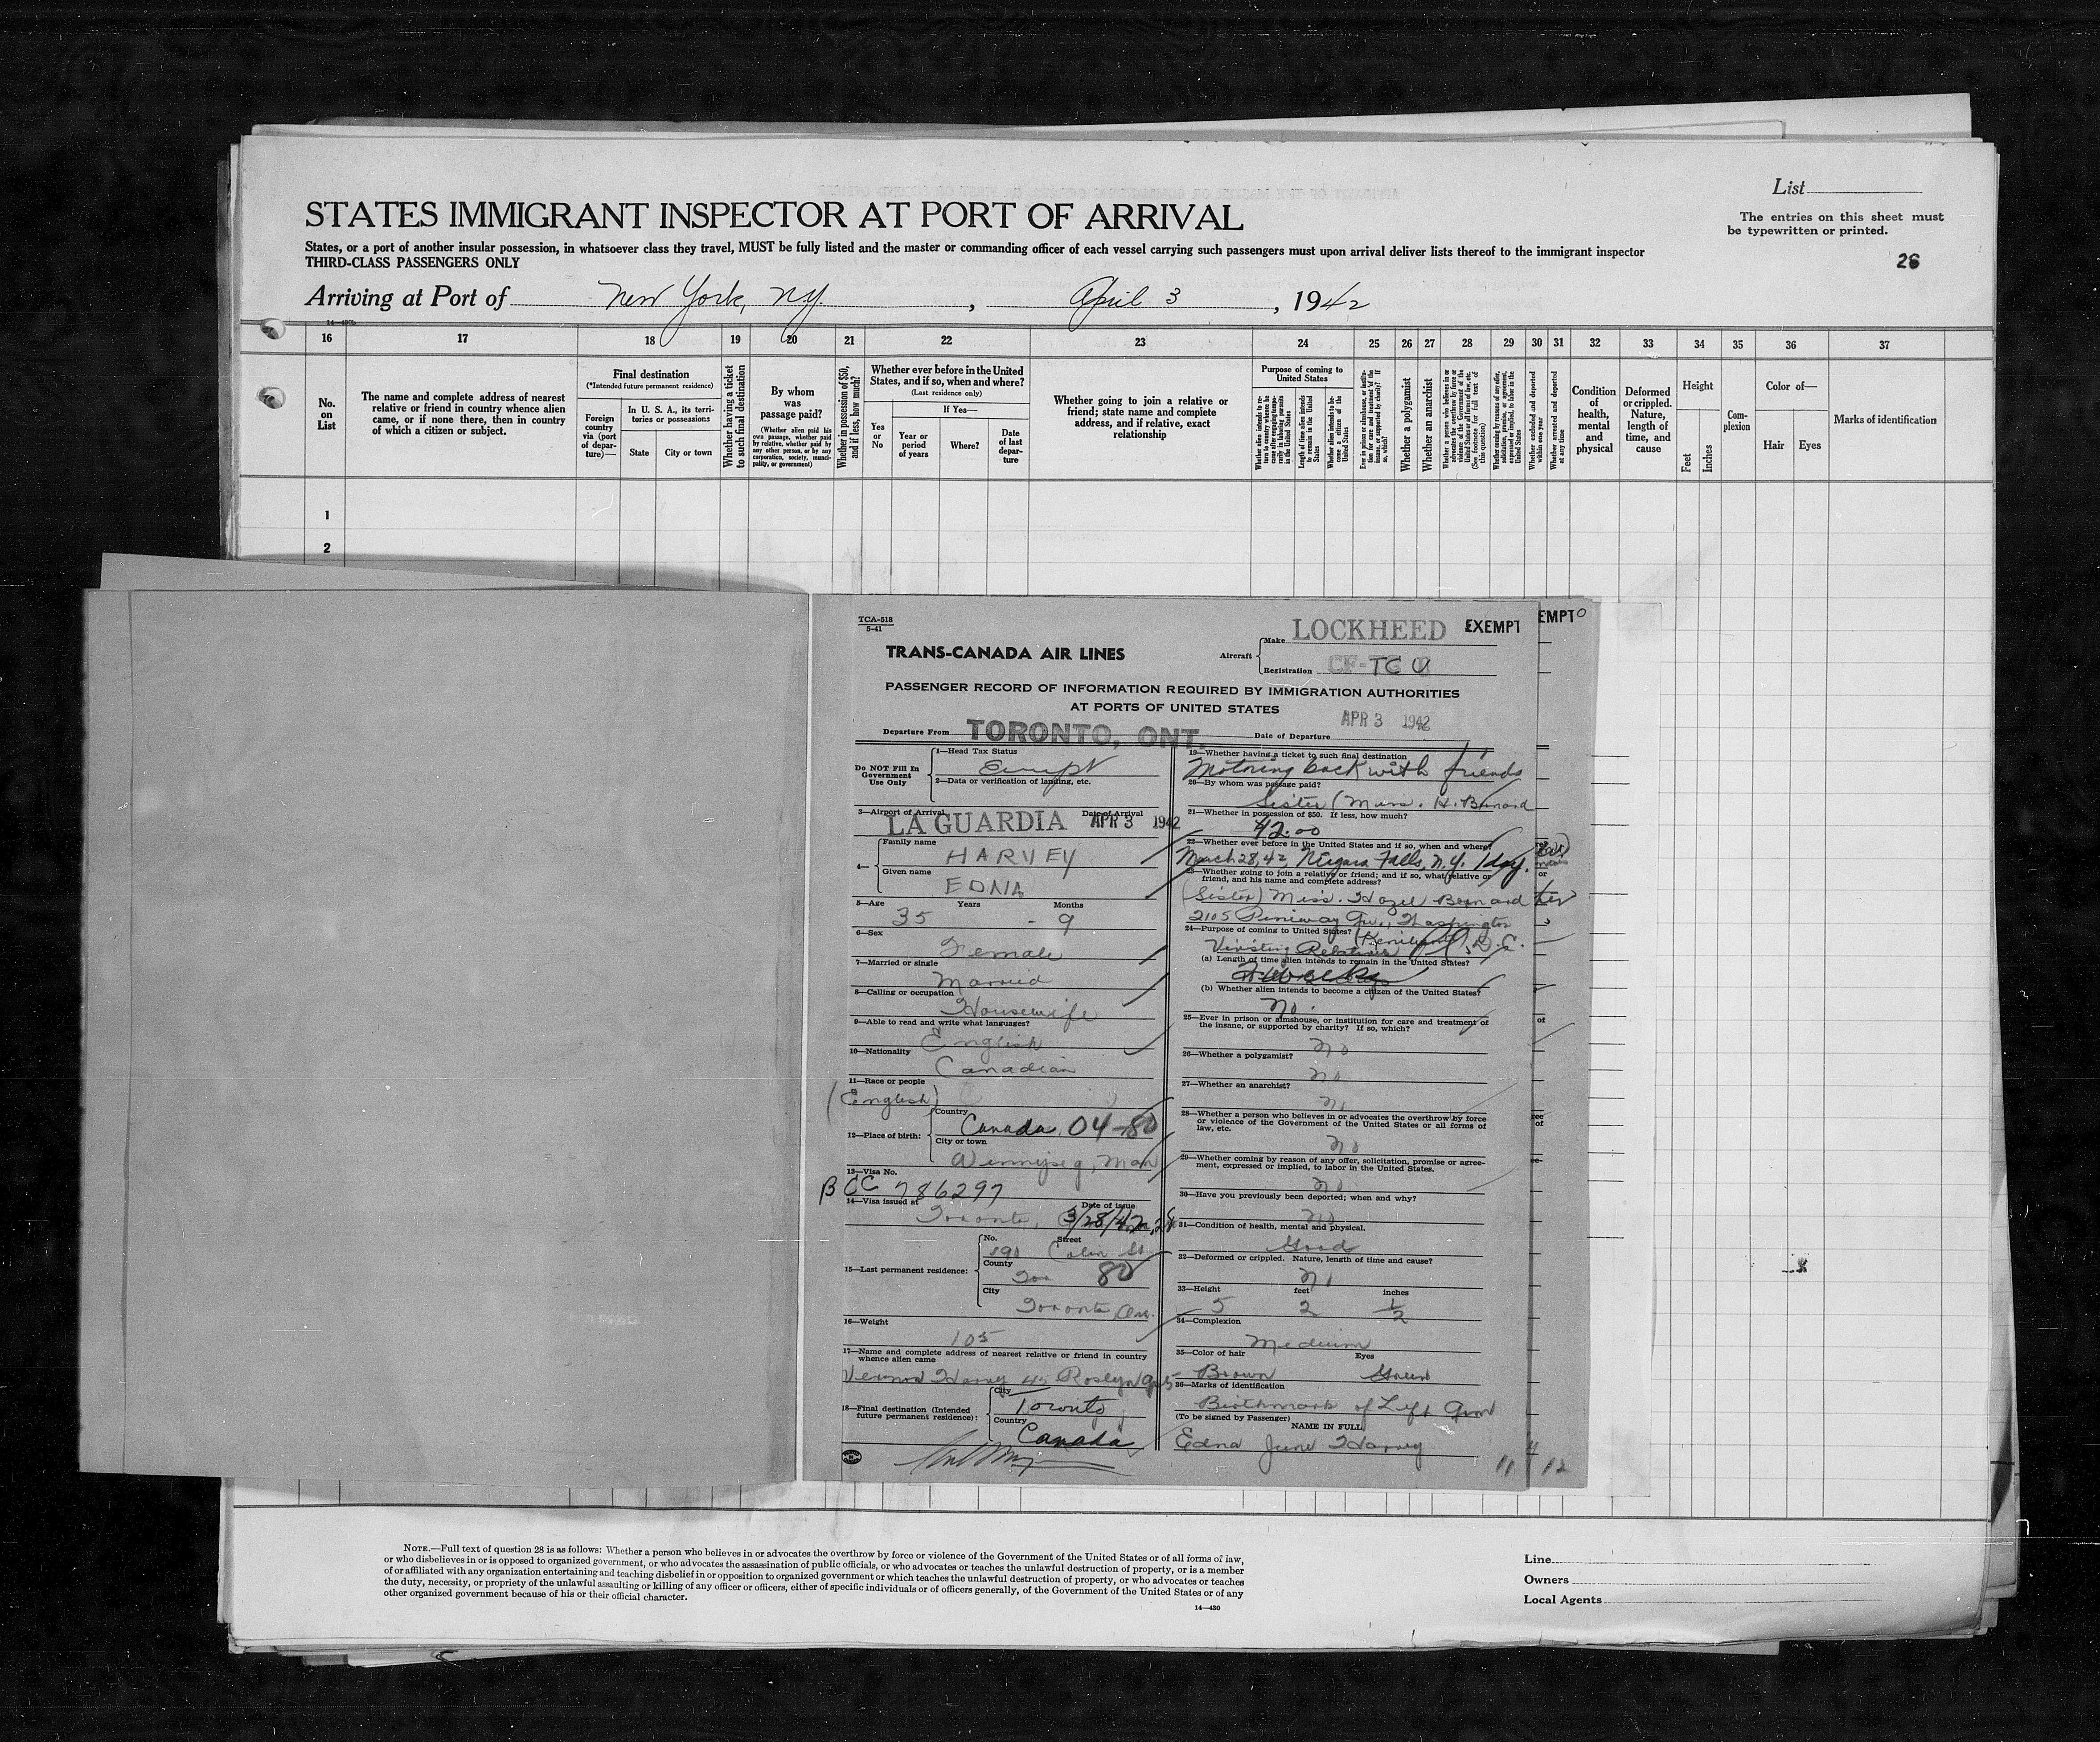 List
The entries on this sheet must
be typewritten or printed.
26
STATES IMMIGRANT INSPECTOR AT PORT OF ARRIVAL
States, or a port of another insular possession, in whatsoever class they travel, MUST be fully listed and the master or commanding officer of each vessel carrying such passengers must upon arrival deliver lists thereof to the immigrant inspector
THIRD-CLASS PASSENGERS ONLY
Arriving at Port of New York, NY, April 3, 1942
16 17 18 19 20 21 22 23 24 25 26 27 28 29 30 31 32 33 34 35 36 37
No. on List
The name and complete address of nearest relative or friend in country whence alien came, or if none there, then in country of which a citizen or subject.
Final destination
(*Intended future permanent residence)
Foreign country via (port of departure)—
In U. S. A., its territories or possessions
State
City or town
Whether having a ticket to such final destination
By whom was passage paid?
(Whether alien paid his own passage, whether paid by relative, whether paid by any other person, or by any corporation, society, municipality, or government)
Whether in possession of $50, and if less, how much?
Whether ever before in the United States, and if so, when and where?
(Last residence only)
Yes or No
If Yes—
Year or period of years
Where?
Date of last departure
Whether going to join a relative or friend; state name and complete address, and if relative, exact relationship
Purpose of coming to United States
Length of time alien intends to remain in the United States
Whether alien intends to become a citizen of the United States
Whether a polygamist
Whether an anarchist
Whether excluded and deported within one year
Whether arrested and deported at any time
Condition of health, mental and physical
Deformed or crippled. Nature, length of time, and cause
Height
Feet
Inches
Complexion
Color of—
Hair
Eyes
Marks of identification
1
2
TCA-518
5-41
TRANS-CANADA AIR LINES
Aircraft
Make LOCKHEED
EXEMPT
EMPT
Registration CF-TCU
PASSENGER RECORD OF INFORMATION REQUIRED BY IMMIGRATION AUTHORITIES
AT PORTS OF UNITED STATES
Departure From TORONTO, ONT.
Date of Departure APR 3 1942
Do NOT Fill In Government Use Only
1—Head Tax Status
Exempt
2—Data or verification of landing, etc.
3—Airport of Arrival Date of Arrival
LA GUARDIA APR 3 1942
4— Family name
HARVEY
Given name
EDNA
5—Age Years Months
35 - 9
6—Sex
Female
7—Married or single
Married
8—Calling or occupation
Housewife
9—Able to read and write what languages?
English
10—Nationality
Canadian
11—Race or people
(English)
12—Place of birth: Country
Canada 04-80
City or town
Winnipeg, Man
13—Visa No.
BCC 786297
14—Visa issued at Date of issue
Toronto, 3/28/42
15—Last permanent residence: No. Street
190 Colin St.
County
Tor 80
City
Toronto, Ont.
16—Weight
105
17—Name and complete address of nearest relative or friend in country
whence alien came
Vernon Harvey 45 Roslyn
18—Final destination (Intended
future permanent residence):
City
Toronto
Country
Canada
19—Whether having a ticket to such final destination
Motoring back with friends
20—By whom was passage paid?
Sister (Miss. H. Bernard
21—Whether in possession of $50. If less, how much?
42.00
22—Whether ever before in the United States and if so, when and where?
March 28, 42, Niagara Falls, N.Y. 1 day.
23—Whether going to join a relative or friend; and if so, what relative or
friend, and his name and complete address?
(Sister) Miss. Hazel Bernard
2105 Av., Washington
24—Purpose of coming to United States?
Visiting Relatives D.C.
(a) Length of time alien intends to remain in the United States?
2 weeks
(b) Whether alien intends to become a citizen of the United States?
No.
25—Ever in prison or almshouse, or institution for care and treatment of
the insane, or supported by charity? If so, which?
No
26—Whether a polygamist?
No
27—Whether an anarchist?
No
28—Whether a person who believes in or advocates the overthrow by force
or violence of the Government of the United States or all forms of
law, etc.
No
29—Whether coming by reason of any offer, solicitation, promise or agree-
ment, expressed or implied, to labor in the United States.
No
30—Have you previously been deported; when and why?
No
31—Condition of health, mental and physical.
Good
32—Deformed or crippled. Nature, length of time and cause?
No
33—Height feet inches
5 2 1/2
34—Complexion
Medium
35—Color of hair Eyes
Brown Green
36—Marks of identification
Birthmark of Left Arm
(To be signed by Passenger)
NAME IN FULL
Edna June Harvey
11
12
NOTE.—Full text of question 28 is as follows: Whether a person who believes in or advocates the overthrow by force or violence of the Government of the United States or of all forms of law,
or who disbelieves in or is opposed to organized government, or who advocates the assassination of public officials, or who advocates or teaches the unlawful destruction of property, or is a member
of or affiliated with any organization entertaining and teaching disbelief in or opposition to organized government or which teaches the unlawful destruction of property, or who advocates or teaches
the duty, necessity, or propriety of the unlawful assaulting or killing of any officer or officers, either of specific individuals or of officers generally, of the Government of the United States or of any
other organized government because of his or their official character.
14—430
Line
Owners
Local Agents